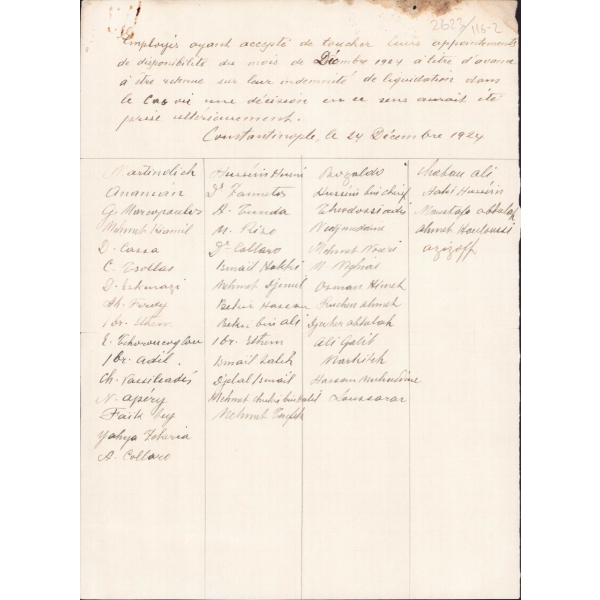 2623/116-2
Employés ayant accepté de toucher leurs appointements
de disponibilité du mois de Décembre 1924 à titre d'avance
à être retenue sur leur indemnité de liquidation dans
le cas où une décision en ce sens aurait été
prise ultérieurement.
Constantinople, le 24 Décembre 1924
Ananian
G. Marcopoulos
Mehmet
D. Cassa
C. Tsollas
D. Eskenazi
Ibr. Ethem
E.
Ibr. Adil.
Ch. Vassiliadès
N. Apéry
Faik bey
Yahya Zekeria
A. Collaro
Hussein Husni
Dr
A.
M. Rizo
Dr Collaro
Ismail Hakki
Mehmet Djemil
Bekir Hassan
Bekir bin Ali
Ibr. Ethem
Ismail Saleh
Djelal Ismail
Mehmet
Mehmet Tewfik
Hussein bin cherif
Theodossiadis
Nedjmeddine
Mehmet Nouri
Osman Himet
ahmet
Djecher abtulah
Ali Galib
Hassan Muhedine
Chaban Ali
Hakki Hussein
Moustafa abtulah
ahmet Houloussi
azizoff